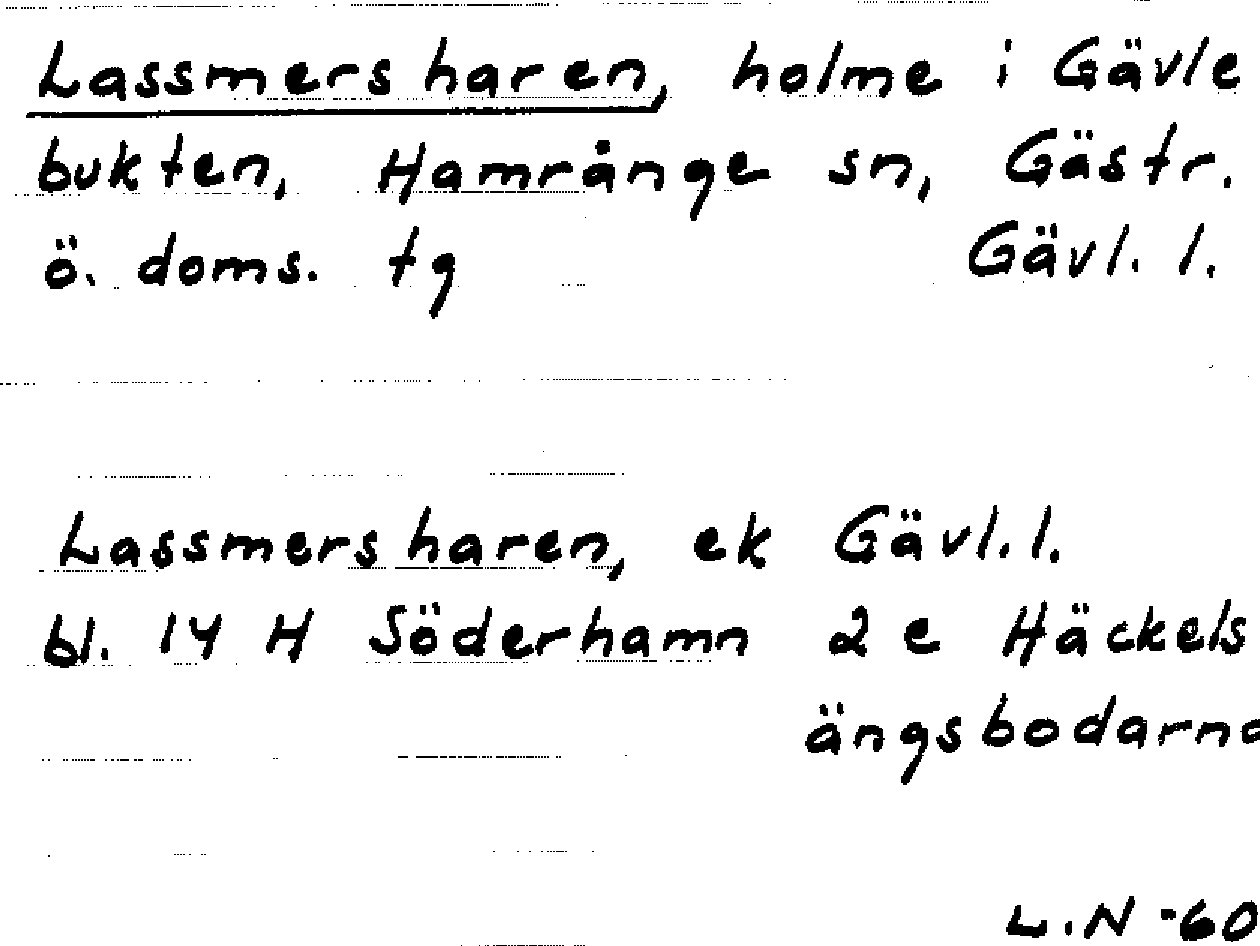 Lassmersharen, holme i Gävle
bukten, Hamrånge sn, Gästr.
ö. doms. tg Gävl. l.
Lassmersharen, ek Gävl. l.
bl. 14 H Söderhamn 2 e Häckels
ängsbodarna
L.N -60